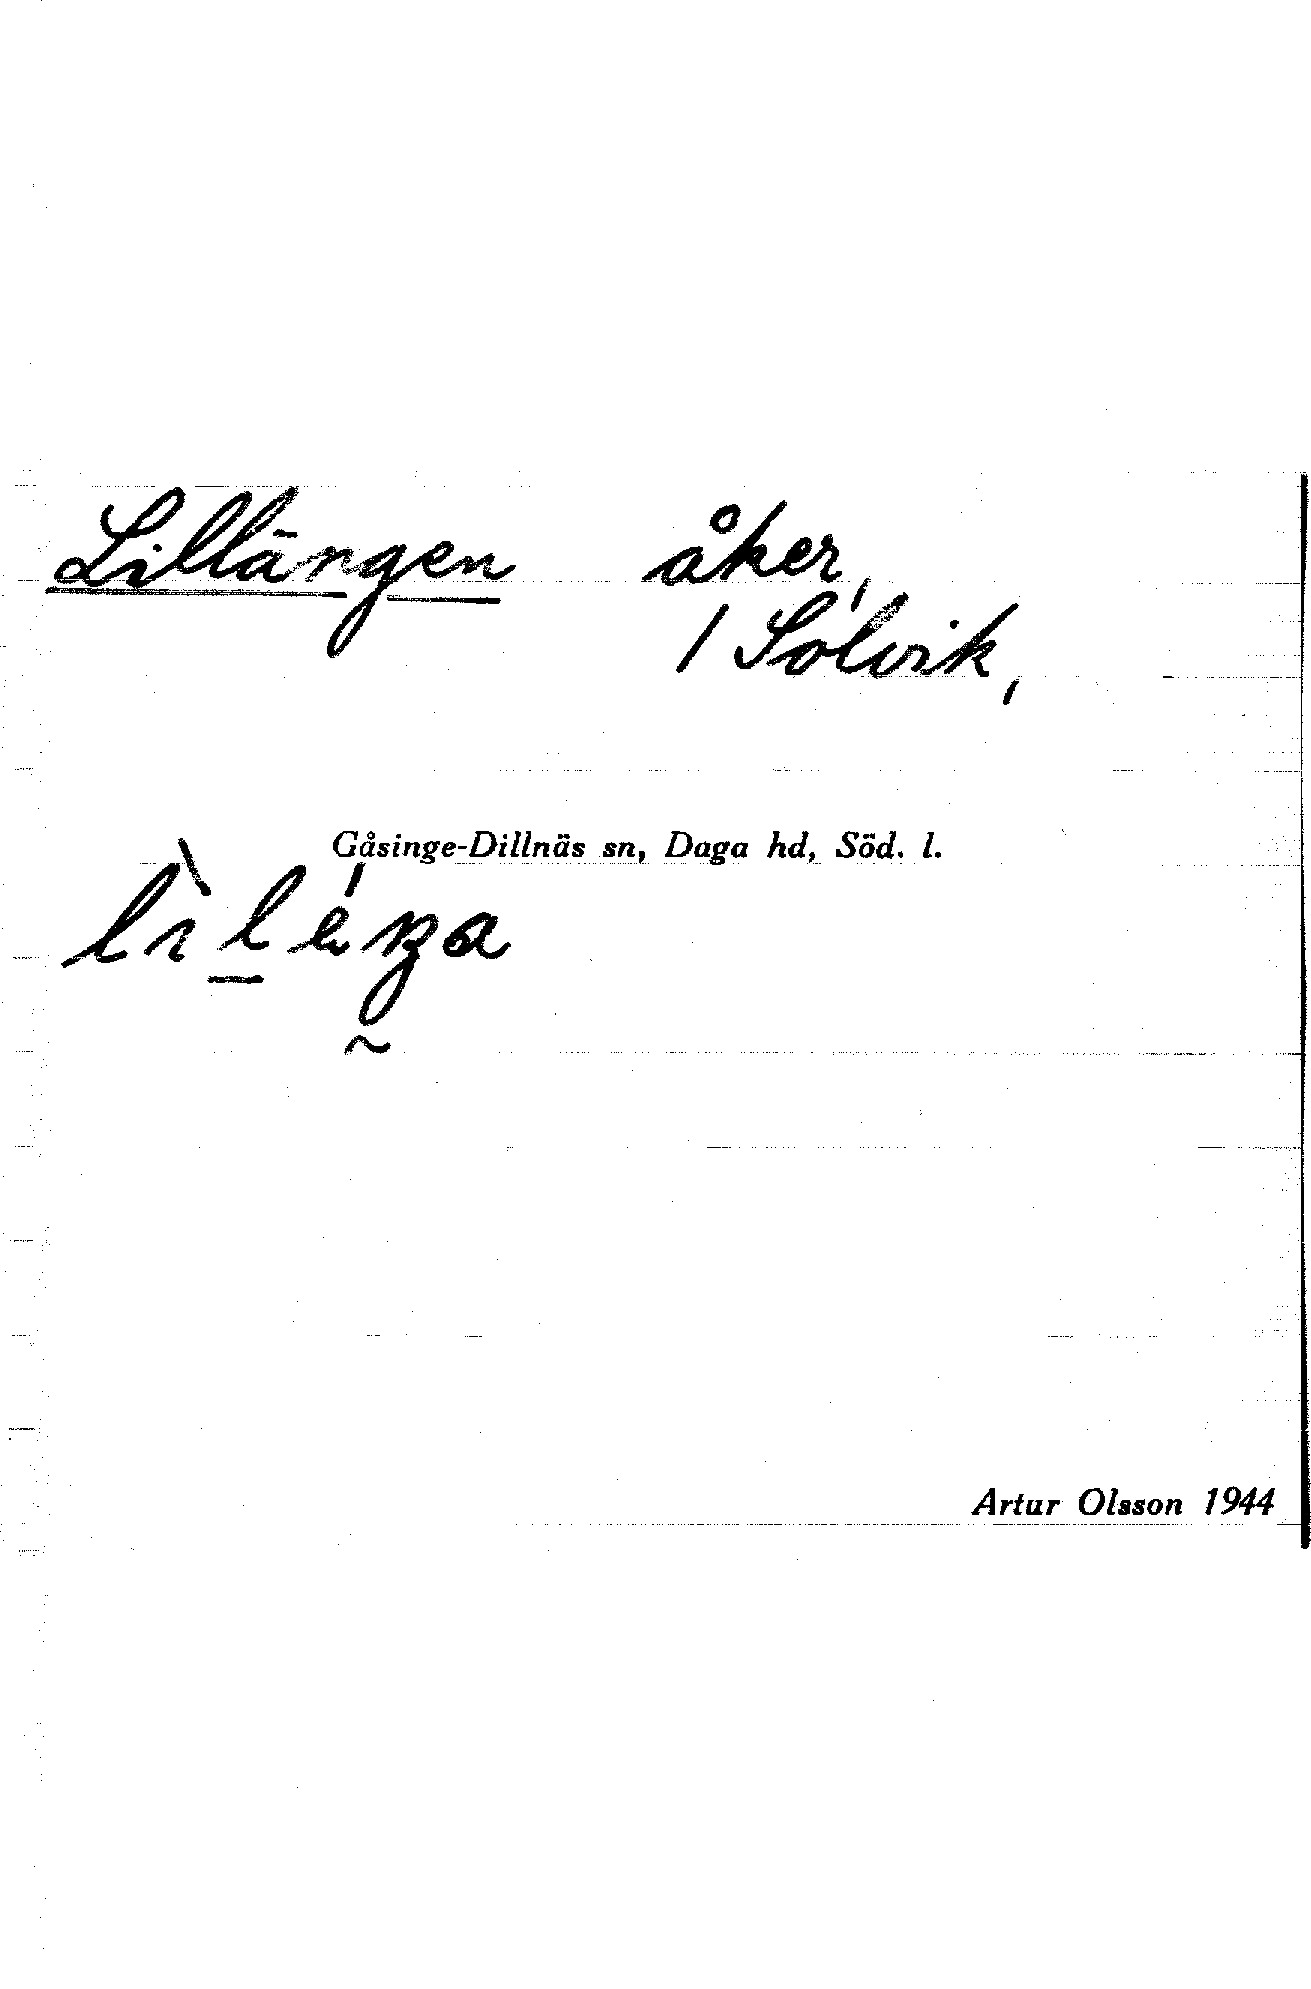 Lillängen åker,
/ Solvik,
Gåsinge-Dillnäs sn, Daga hd, Söd. l.
Artur Olsson 1944